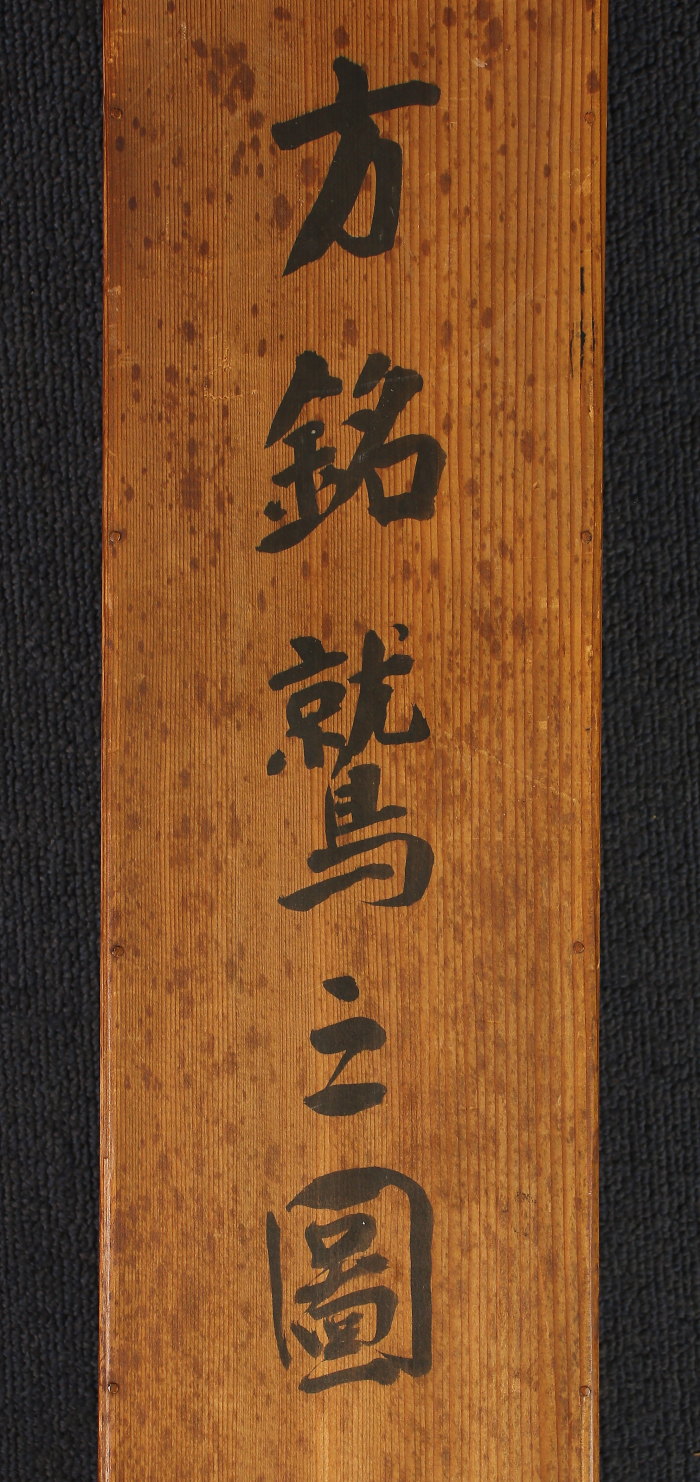 方銘鷲之圖